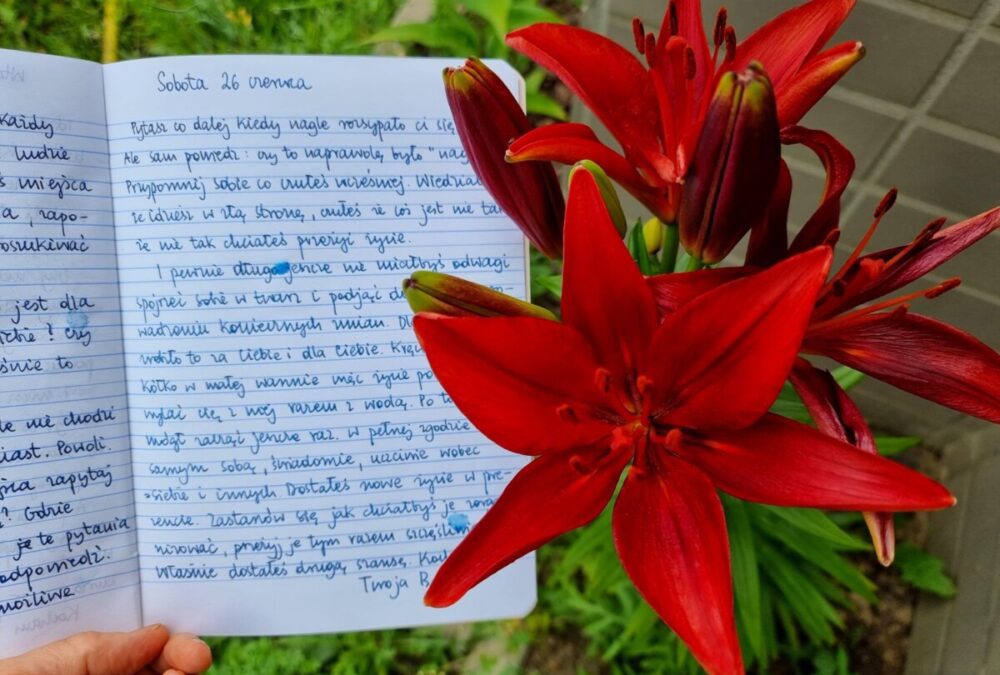 każdy
ludzie
miejsca
, zapo-
oszukiwać
jest dla
? Czy
śnie to
nie chodzi
iast. Powoli.
zapytaj
? Gdzie
je te pytania
odpowiedzi.
możliwe
Sobota 26 czerwca
Pytasz co dalej kiedy nagle rozsypało ci się
Ale sam powiedz: czy to naprawdę było "nag
Przypomnij sobie co czułeś wcześniej. Wiedzia
że idziesz w złą stronę, czułeś że coś jest nie tak
że nie tak chciałeś przeżyć życie.
I pewnie długo jeszcze nie miałbyś odwagi
spojrzeć sobie w twarz i podjąć de
wadzeniu koniecznych zmian. Dl
zrobiło to za Ciebie i dla Ciebie. Kręc
kółko w małej wannie więc życie po
wylać cię z niej razem z wodą. Po to
mógł zacząć jeszcze raz. W pełnej zgodzie
samym sobą, świadomie, uczciwie wobec
siebie i innych. Dostałeś nowe życie w pre-
zencie. Zastanów się jak chciałbyś je
, przeżyj je tym razem szczęśliw
Właśnie dostałeś drugą szansę. Koch
Twoja B